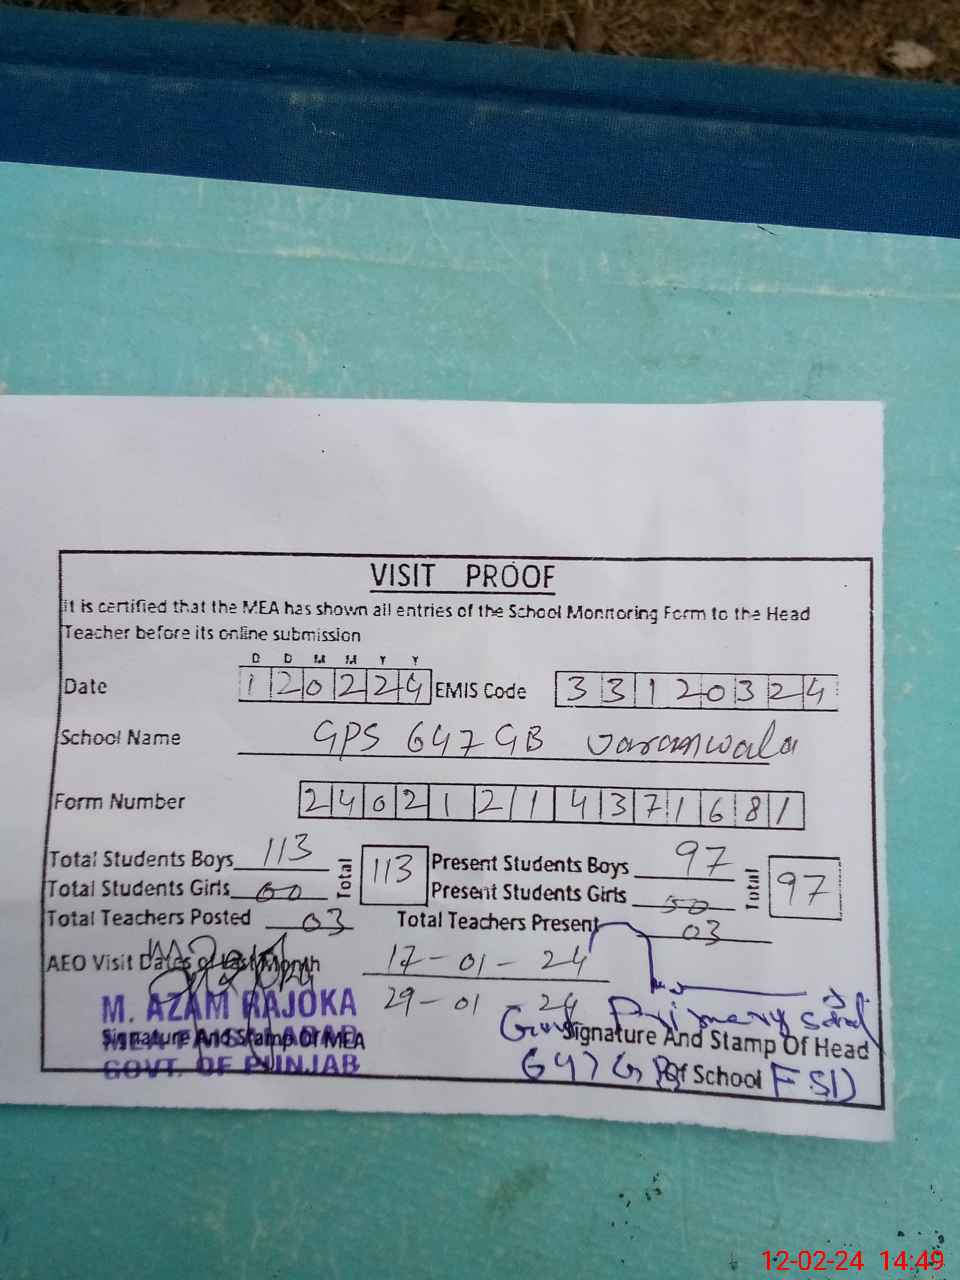 VISIT PROOF
It is certified that the MEA has shown all entries of the School Monitoring Form to the Head
Teacher before its online submission
D D M M Y Y
Date 120224 EMIS Code 33120324
School Name GPS 647 GB Jaranwala
Form Number 24021214371681
Total Students Boys 113 Total 113 Present Students Boys 97 Total 97
Total Students Girls 00 Present Students Girls 00
Total Teachers Posted 03 Total Teachers Present 03
AEO Visit Dates of Last Month 17-01-24
29-01-24
M. AZAM RAJOKA
Signature And Stamp Of MEA
GOVT. OF PUNJAB
Govt Primary School
Signature And Stamp Of Head
Of School
647 GB FSD
12-02-24 14:49